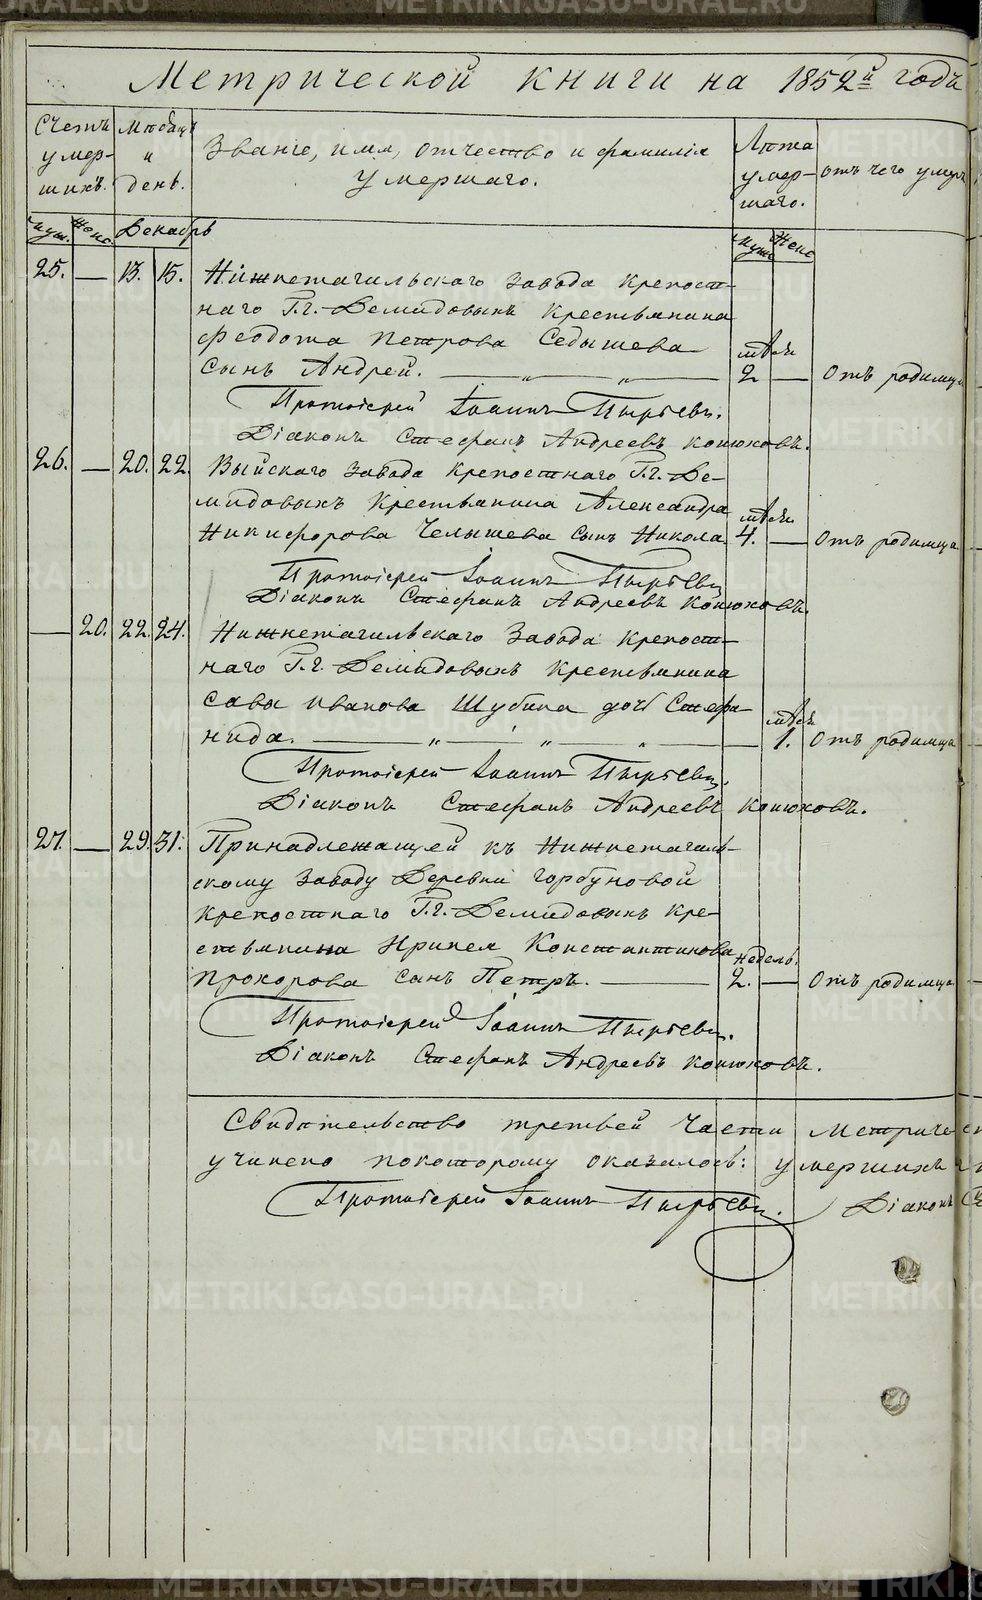 Метрической книги на 1852й годъ
Счетъ умершихъ.
Мѣсяцъ и день.
Званіе, имя, отчество и фамилія умершаго.
Лѣта умершаго.
отъ чего умеръ
муж. женс. Декабрь
муж. женс
25. — 13. 15. Нижнетагильскаго завода крѣпост-
наго Г.г. Демидовыхъ крестьянина
Феодота Петрова Седышева мѣсяц.
сынъ Андрей. — „ — „ — 2 — Отъ родимца
Протоіерей Іоаннъ Пырьевъ.
Діаконъ Стефанъ Андреевъ Конюховъ.
26. — 20. 22. Выйскаго завода крѣпостнаго Г.г. Де-
мидовыхъ крестьянина Александра мѣсяц.
Никифорова Челышева сынъ Никола 4. — Отъ родимца
Протоіерей Іоаннъ Пырьевъ
Діаконъ Стефанъ Андреевъ Конюховъ.
— 20. 22. 24. Нижнетагильскаго завода крѣпост-
наго Г.г. Демидовыхъ крестьянина
Савы Иванова Шубина дочь Стефа-
нида. — „ — „ — „ — мѣсяц. 1. Отъ родимца
Протоіерей Іоаннъ Пырьевъ.
Діаконъ Стефанъ Андреевъ Конюховъ.
27. — 29. 31. Принадлежащей къ Нижнетагиль-
скому заводу Деревни Горбуновой
крѣпостнаго Г.г. Демидовыхъ кре-
стьянина Иринея Константинова недель.
Прохорова сынъ Петръ. — 2. — Отъ родимца
Протоіерей Іоаннъ Пырьевъ.
Діаконъ Стефанъ Андреевъ Конюховъ.
Свидѣтельство третьей части Метриче
учинено покоторому оказалось: умершихъ
Протоіерей Іоаннъ Пырьевъ. Діаконъ
METRIKI.GASO-URAL.RU